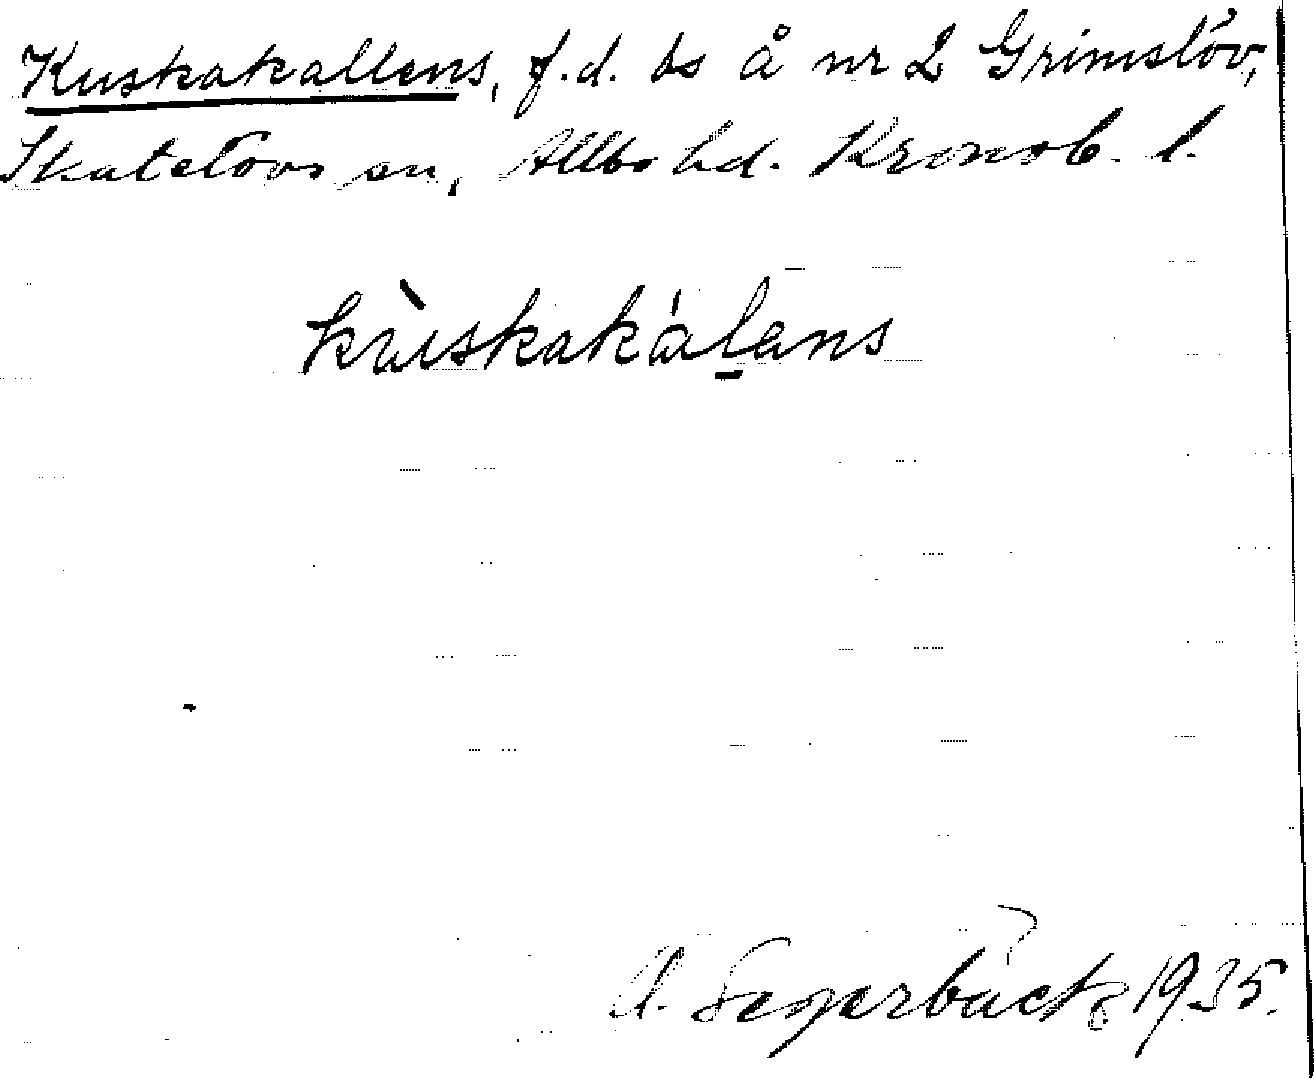 Kuskakallens, f.d. bs å nr 2 Grimslöv,
Skatelövs sn, Allbo hd. Kronob. l.
kùskakálans
A. Segerbäck 1935.